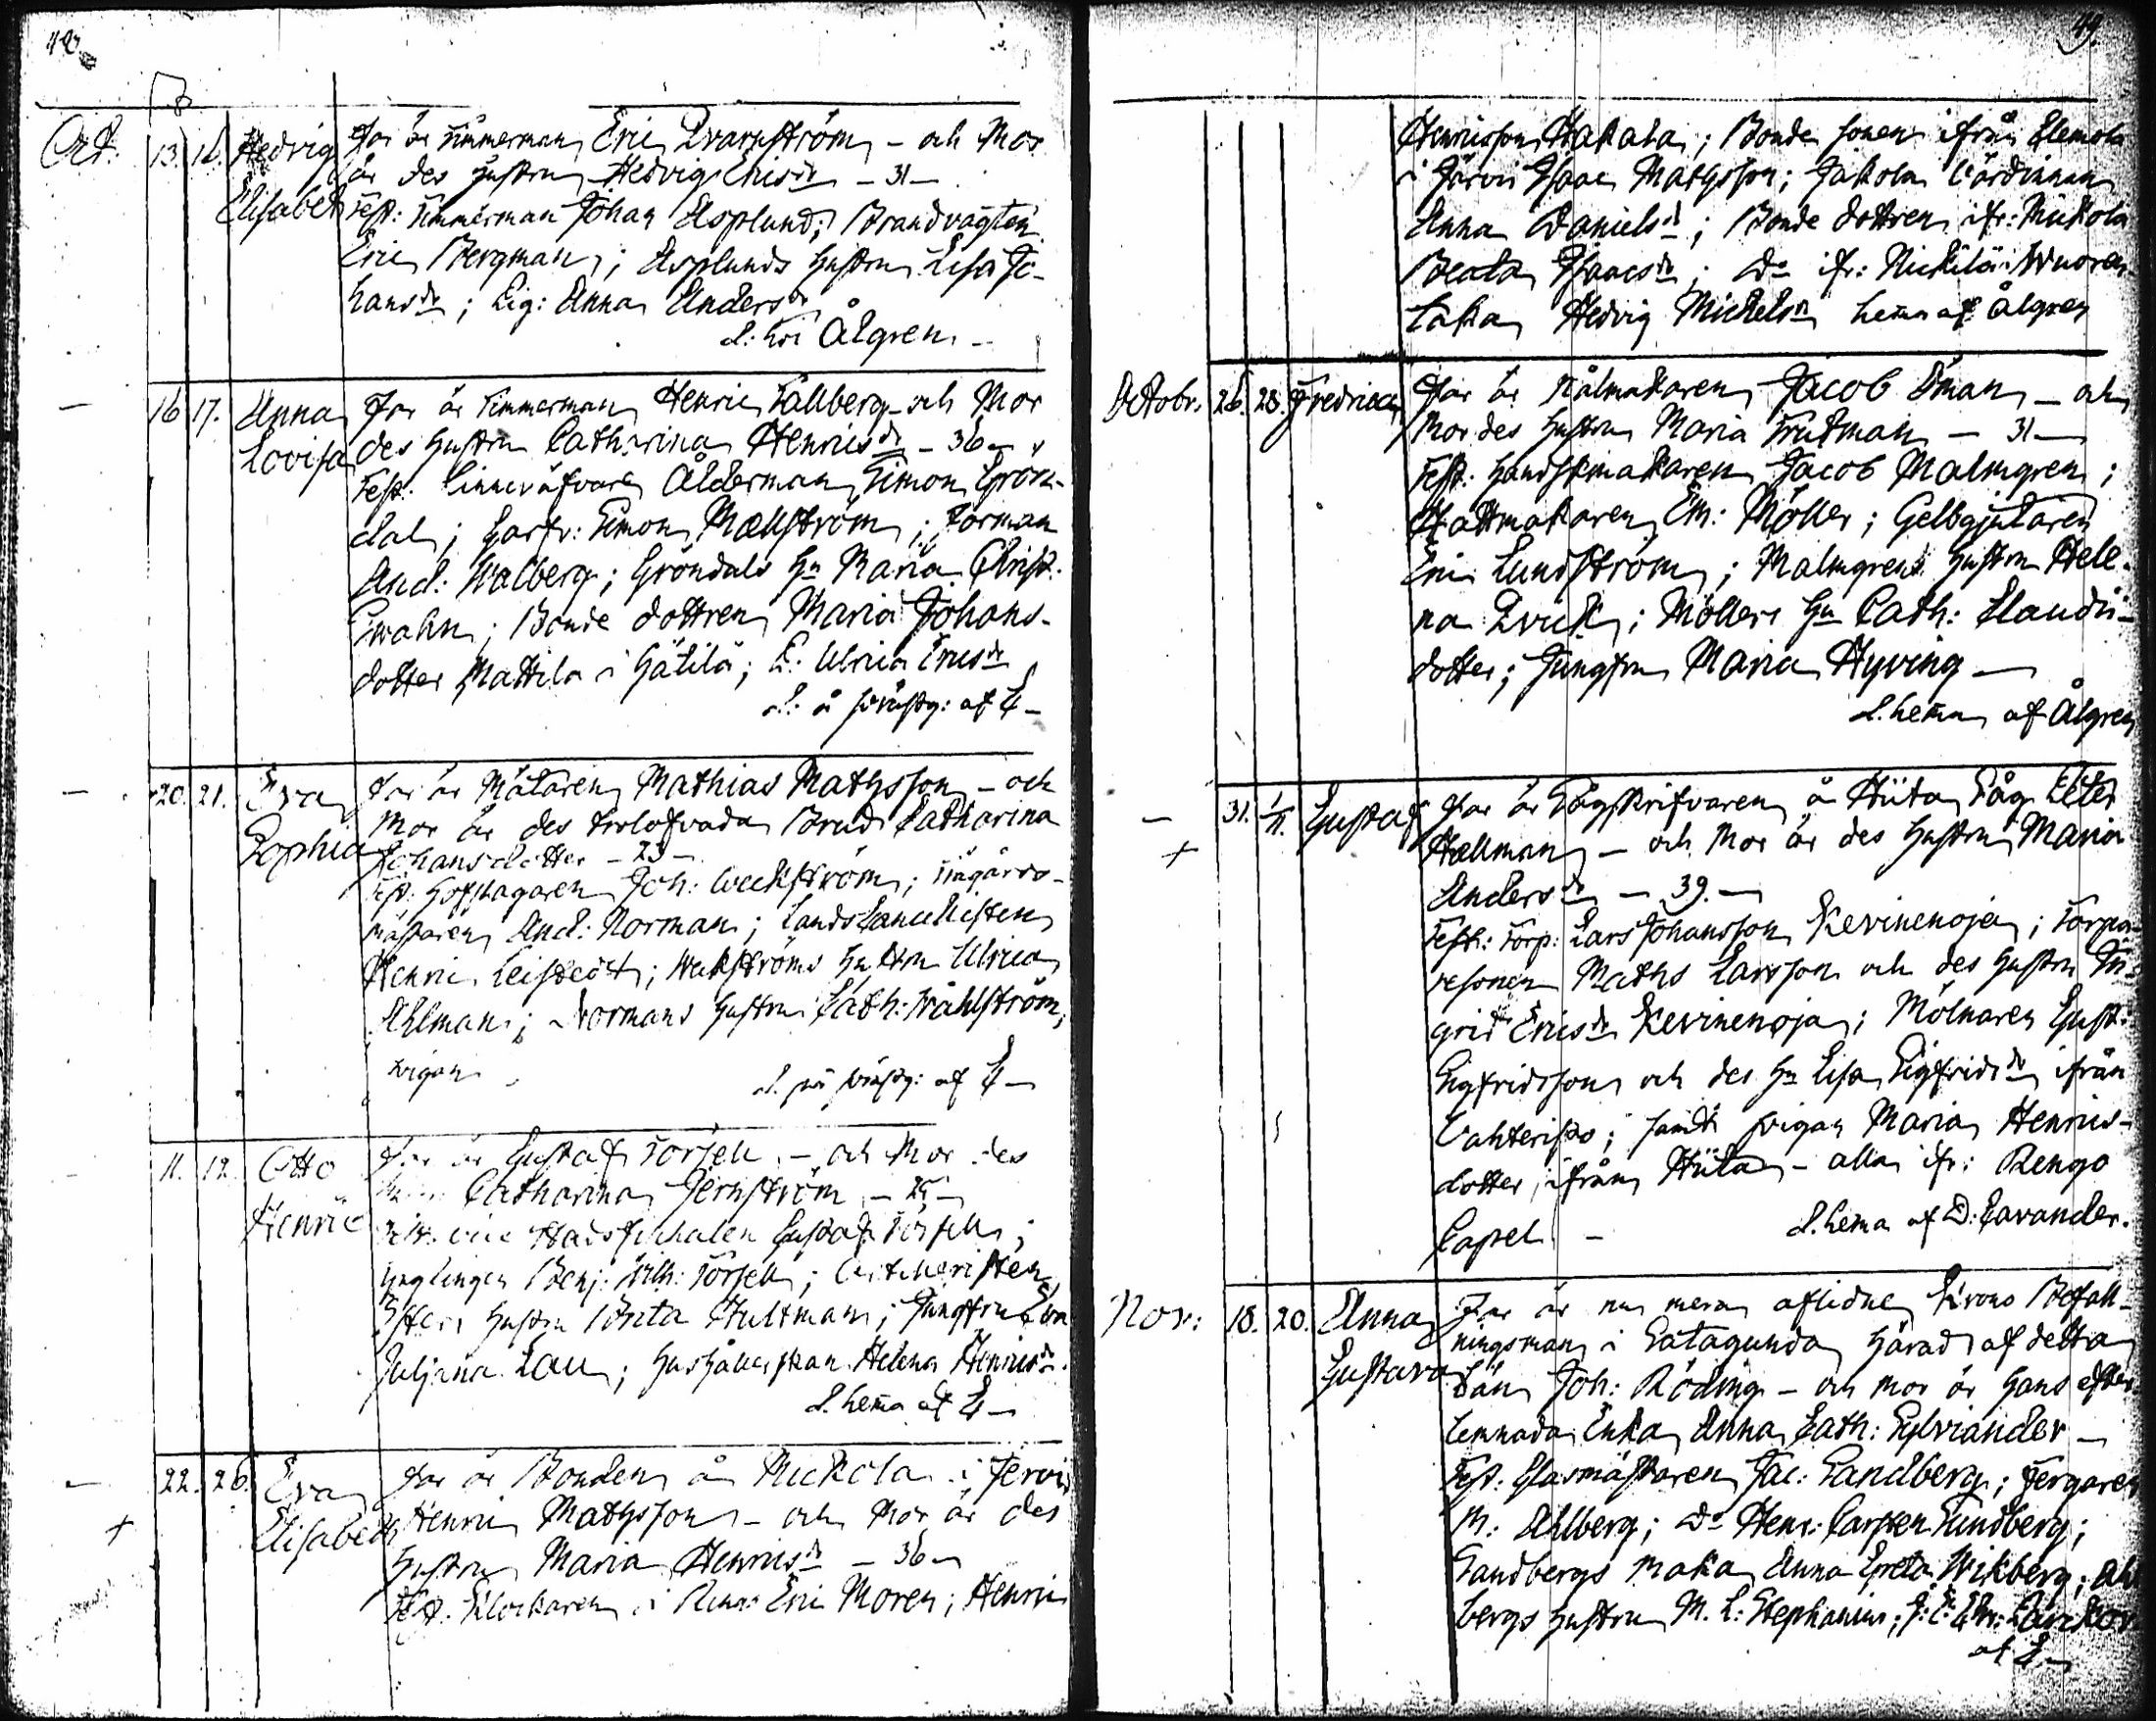 48.
Oct. 13. 18. Hedvig Elisabet
Far är Timmerman Eric Qvarnström - och Mor
är des hustru Hedvig Ericsdr - 31 -
Test: Timmerman Johan Asplund; Brandvagten
Eric Bergman; Asplunds hustru Lisa Jo-
hansdr; Pig: Anna Andersdr
d: hos Ålgren -
16 17. Anna Lovisa
Far är Timmerman Henric Fallberg - och Mor
des hustru Catharina Henricsdr - 36 -
Test: Linneväfvare Ålderman Simon Grön-
dal; Garfv: Simon Mællström; Forman
And: Walberg; Gröndals Hu Maria Christ:
Swahn; Bonde dottren Maria Johans-
dotter Mattila i Hätilä; P: Ulrica Ericsdr
d: å prästg: af E -
20. 21. Eva Sophia
Far är Mätaren Mathias Matsson - och
Mor är des trolofvada Brud Catharina
Johansdotter - 23 -
Test: Hofslagaren Joh: Weckström; Ringkars-
mästaren And: Norman; Lands Cancellisten
Henric Leistedt; Wekströms hustru Ulrica
Ahlman; Normans hustru Cath: Wahlström;
pigan
d. på prästg: af E -
11. 12. Otto Henric
Far är Gustaf Forsell - och Mor des
Hu Catharina Jernström - 25 -
Test: vice Stadsfiskalen Gustaf Forsell;
Ynglingen Benj: Wilh: Forsell; Artilleristen
hustru Brita Hultman; Jungfru Eva
Juliana Lau; hushållerskan Helena Henricsdr
d. hema af E -
22. 26. Eva Elisabeth
Far är Bonden å Mickola i Jervis
Henric Matsson - och Mor är des
hustru Maria Henricsdr - 36 -
Test: Klockaren i Renco Eric Moren; Henric
49.
Henricsson Hakala; Bonde sonen ifrån Klemola
i Järvis Isaac Matsson; Jakola värdinnan
Anna Danielsdr; Bonde dottren ifr: Mickola
Beata Isaacsdr; Do ifr: Nickilä i Wuoren-
taka Hedvig Michelsdr hema af Ålgren
Octobr. 26. 28. Fredrica
Far är Nålmakaren Jacob Öman - och
Mor des hustru Maria Trutman - 31 -
Test: Handskmakaren Jacob Malmgren;
Hattmakaren Em: Möller; Gelbgjutaren
Eric Lundström; Malmgrens hustru Hele-
na Qvick; Möllers Hu Cath: Claudii-
dotter; Jungfru Maria Hyving -
d. hema af Ålgren
31. 1/11. Gustaf
Far är Sågskrifvaren å Hiita Såg Peter
Hællman - och Mor är des hustru Maria
Andersdr - 39. -
Test: Torp: Lars Johansson Kevinenoja; Torpa-
resonen Maths Larsson och des hustru In-
grid Ericsdr Kevinenoja; Mölnaren Gust:
Sigfridsson och des Hu Lisa Sigfridsdr ifrån
Vahteristo; samt pigan Maria Henrics-
dotter ifrån Hiita - alla ifr: Rengo
Capel -
d. hema af D: Cavander.
Nov: 18. 20. Anna Gustava
Far är nu mera aflidne Krono Befall-
ningsman i Satagunda Härad af detta
Län Joh: Röding - och mor är Hans efter-
lemnada Enka Anna Cath: Sylviander -
Test: Glasmästaren Jac: Sandberg; Fergaren
M: Ahlberg; Do Henr: Casper Sundberg;
Sandbergs maka Anna Greta Wikberg; Ahl-
bergs hustru M. L: Stephanius;
af E -